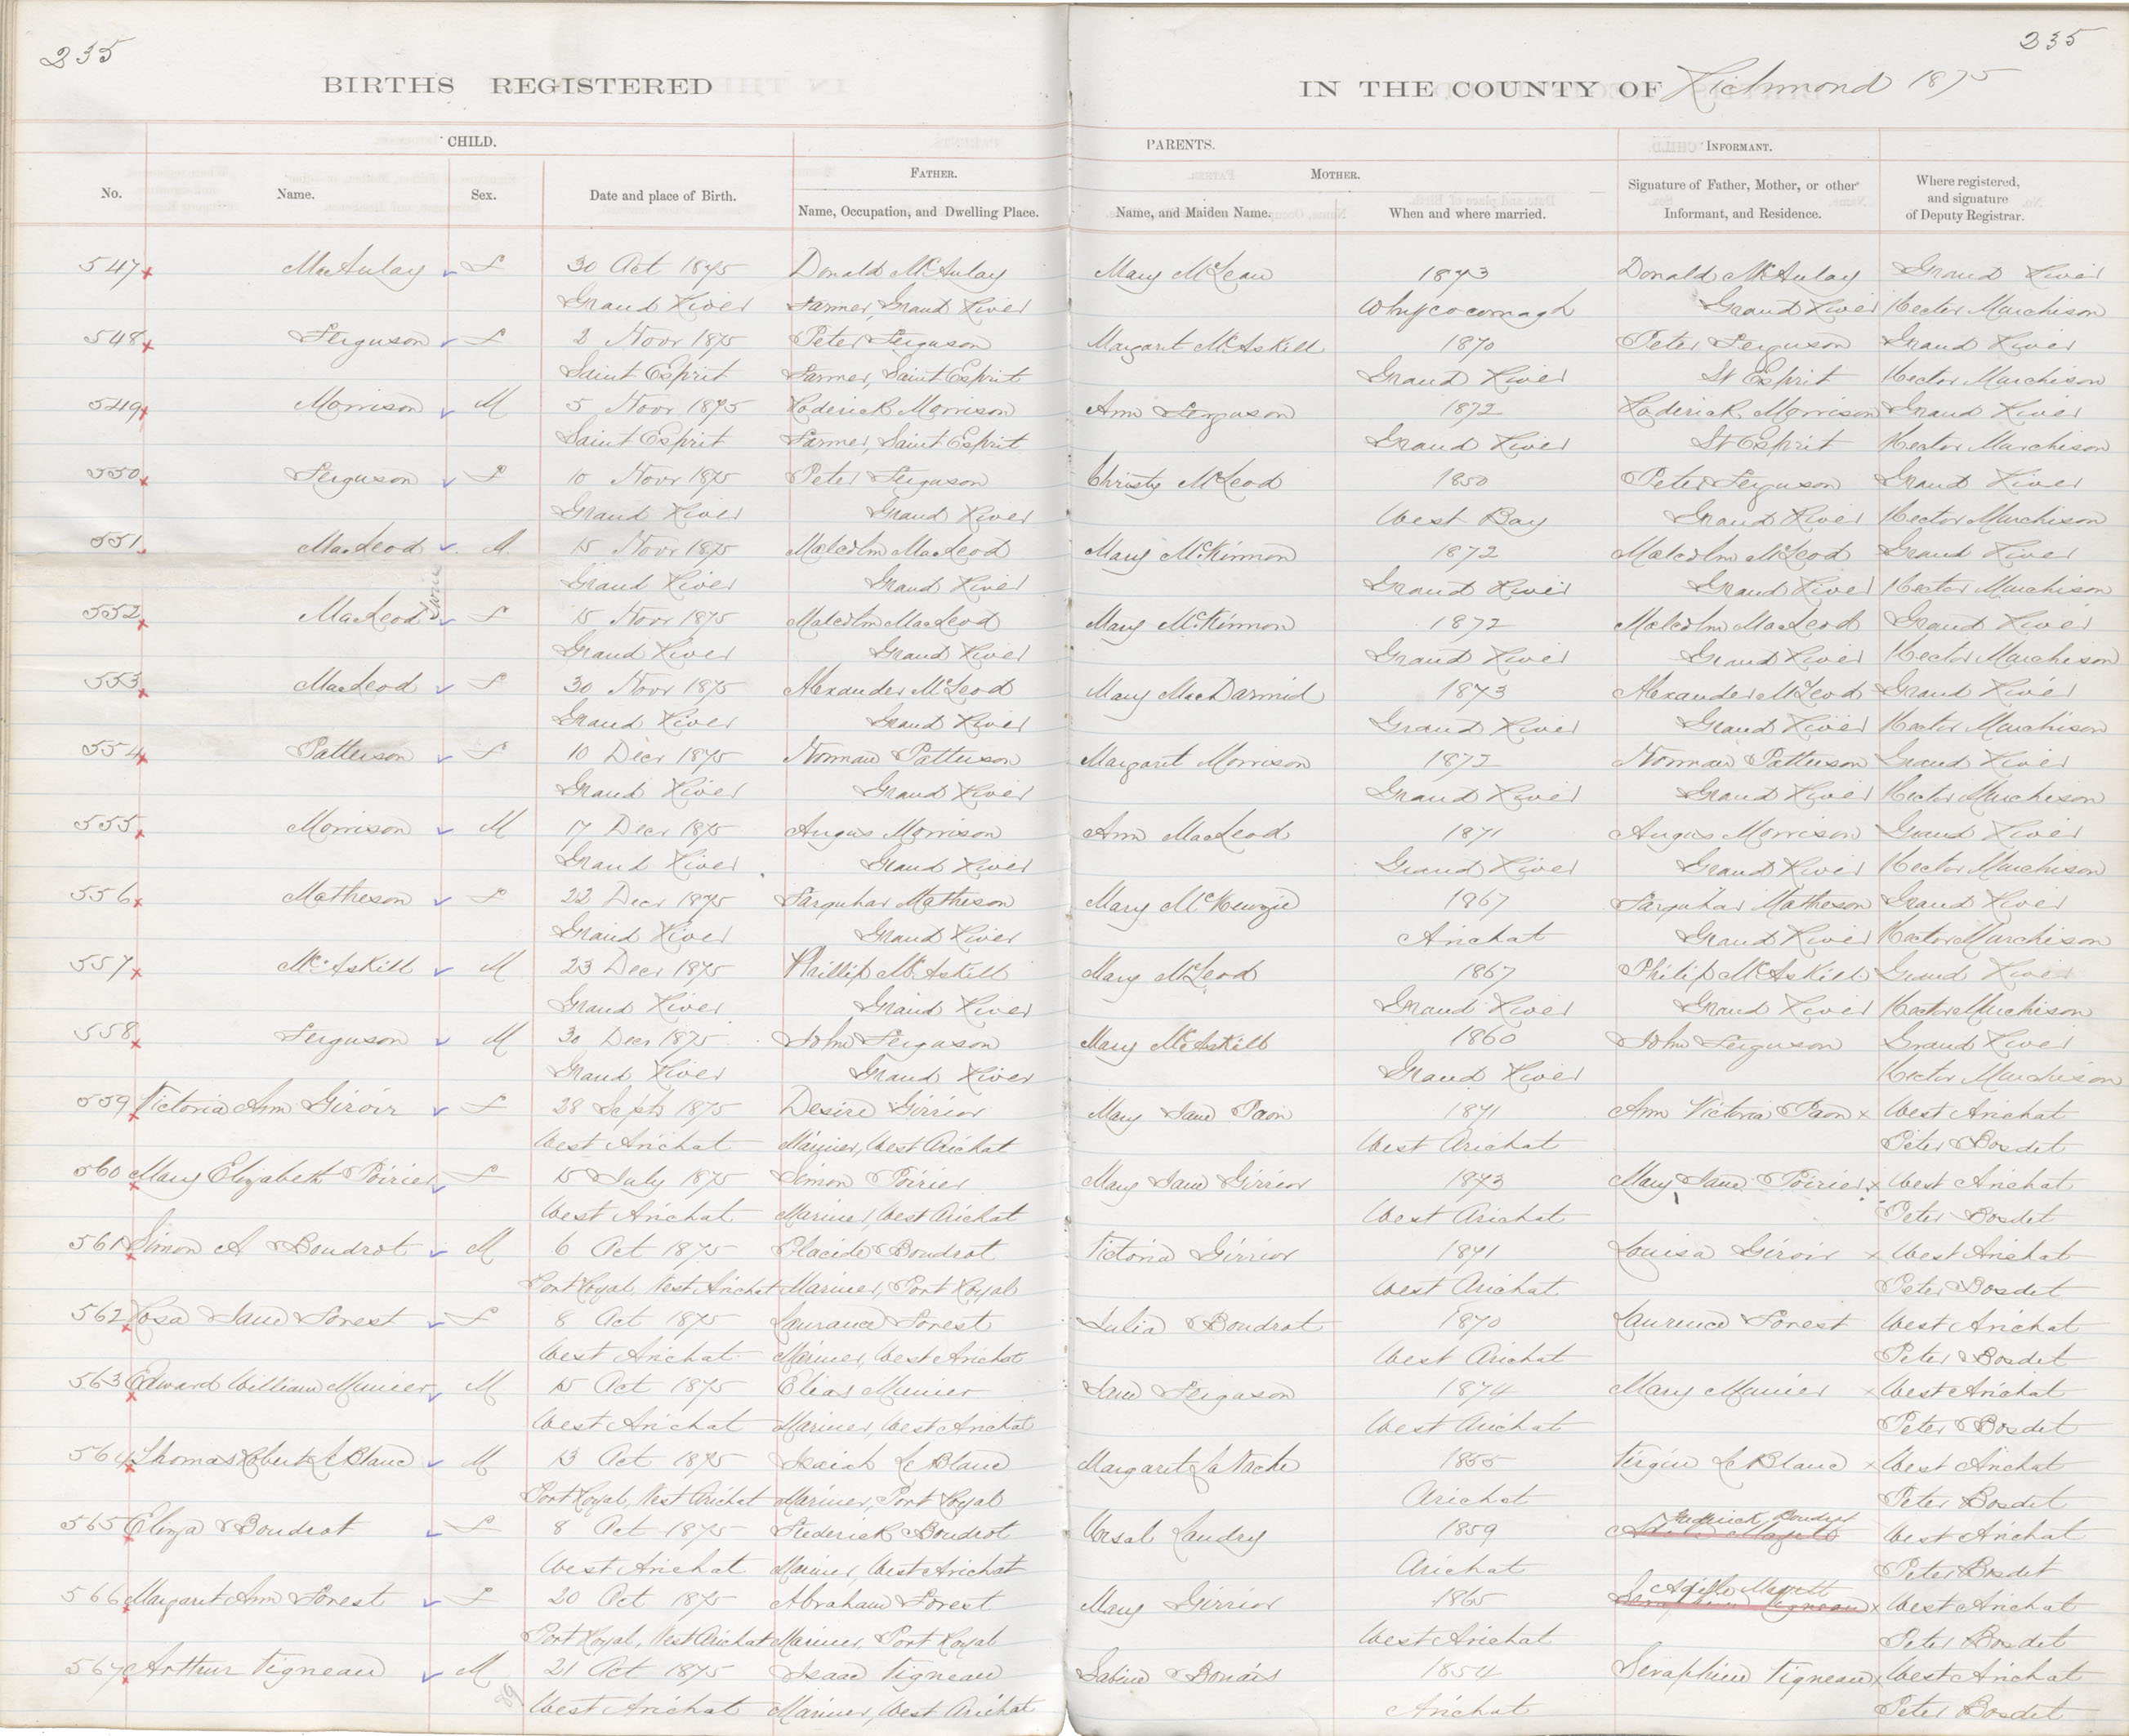 235
235
BIRTHS REGISTERED
IN THE COUNTY OF Richmond 1875
CHILD.
PARENTS.
INFORMANT.
No.
Name.
Sex.
Date and place of Birth.
FATHER.
Name, Occupation, and Dwelling Place.
MOTHER.
Name, and Maiden Name.
When and where married.
Signature of Father, Mother, or other
Informant, and Residence.
Where registered,
and signature
of Deputy Registrar.
547 MacAulay f 30 Oct 1875 Donald McAulay Mary McLean 1873 Donald McAulay Grand River
Grand River Farmer, Grand River Whycocomagh Grand River Hector Murchison
548 Ferguson f 2 Novr 1875 Peter Ferguson Margaret McAskill 1870 Peter Ferguson Grand River
Saint Esprit Farmer, Saint Esprit Grand River St Esprit Hector Murchison
549 Morrison M 5 Novr 1875 Roderick Morrison Ann Ferguson 1872 Roderick Morrison Grand River
Saint Esprit Farmer, Saint Esprit Grand River St Esprit Hector Murchison
550 Ferguson f 10 Novr 1875 Peter Ferguson Christy McLeod 1850 Peter Ferguson Grand River
Grand River Grand River West Bay Grand River Hector Murchison
551 MacLeod M 15 Novr 1875 Malcolm MacLeod Mary McKinnon 1872 Malcolm McLeod Grand River
Grand River Grand River Grand River Grand River Hector Murchison
552 MacLeod f 15 Novr 1875 Malcolm MacLeod Mary McKinnon 1872 Malcolm MacLeod Grand River
Grand River Grand River Grand River Grand River Hector Murchison
553 MacLeod f 30 Novr 1875 Alexander McLeod Mary MacDarmid 1873 Alexander McLeod Grand River
Grand River Grand River Grand River Grand River Hector Murchison
554 Patterson f 10 Decr 1875 Norman Patterson Margaret Morrison 1872 Norman Patterson Grand River
Grand River Grand River Grand River Grand River Hector Murchison
555 Morrison M 17 Decr 1875 Angus Morrison Ann MacLeod 1871 Angus Morrison Grand River
Grand River Grand River Grand River Grand River Hector Murchison
556 Matheson f 22 Decr 1875 Farquhar Matheson Mary McKenzie 1867 Farquhar Matheson Grand River
Grand River Grand River Arichat Grand River Hector Murchison
557 McAskill M 23 Decr 1875 Phillip McAskill Mary McLeod 1867 Philip McAskill Grand River
Grand River Grand River Grand River Grand River Hector Murchison
558 Ferguson M 30 Decr 1875 John Ferguson Mary McAskill 1860 John Ferguson Grand River
Grand River Grand River Grand River Hector Murchison
559 Victoria Ann Giroir f 28 Sept 1875 Desire Girrior Mary Jane Paon 1871 Ann Victoria Paon x West Arichat
West Arichat Mariner, West Arichat West Arichat Peter Bosdet
560 Mary Elizabeth Poirier f 15 July 1875 Simon Poirier Mary Jane Girrior 1873 Mary Jane Poirier x West Arichat
West Arichat Mariner, West Arichat West Arichat Peter Bosdet
561 Simon A Boudrot M 6 Oct 1875 Placide Boudrot Victoria Girrior 1871 Louisa Giroir x West Arichat
Port Royal, West Arichat Mariner, Port Royal West Arichat Peter Bosdet
562 Rosa Jane Forest f 8 Oct 1875 Laurance Forest Julia Boudrot 1870 Laurence Forest West Arichat
West Arichat Mariner, West Arichat West Arichat Peter Bosdet
563 Edward William Munier M 15 Oct 1875 Elias Munier Jane Ferguson 1874 Mary Munier x West Arichat
West Arichat Mariner, West Arichat West Arichat Peter Bosdet
564 Thomas Robert LeBlanc M 13 Oct 1875 Isaiah LeBlanc Margaret LaVache 1855 Virgin LeBlanc x West Arichat
Port Royal, West Arichat Mariner, Port Royal Arichat Peter Bosdet
565 Eliza Boudrot f 8 Oct 1875 Frederick Boudrot Ursal Landry 1859 Frederick Boudrot West Arichat
West Arichat Mariner, West Arichat Arichat Peter Bosdet
566 Margaret Ann Forest f 20 Oct 1875 Abraham Forest Mary Girrior 1865 x West Arichat
Port Royal, West Arichat Mariner, Port Royal West Arichat Peter Bosdet
567 Arthur Vigneau M 21 Oct 1875 Isaac Vigneau Sabine 1854 Seraphine Vigneau x West Arichat
West Arichat Mariner, West Arichat Arichat Peter Bosdet